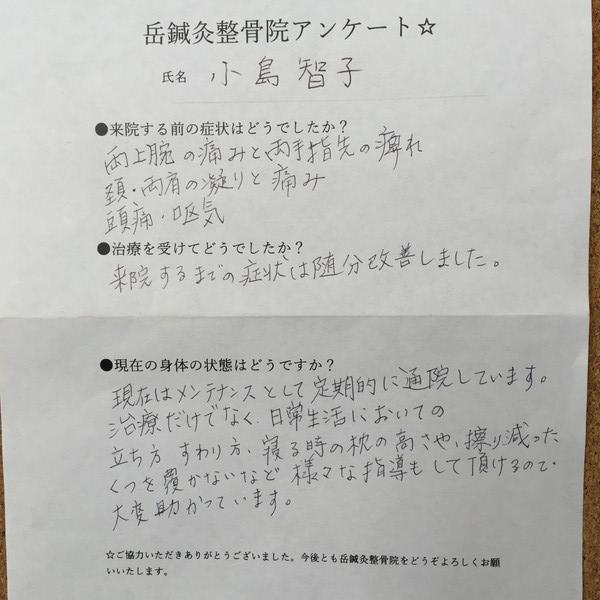 岳鍼灸整骨院アンケート☆
氏名 小島智子
●来院する前の症状はどうでしたか？
両上腕の痛みと両手指先の痺れ
頚・両肩の凝りと痛み
頭痛・嘔気
●治療を受けてどうでしたか？
来院するまでの症状は随分改善しました。
●現在の身体の状態はどうですか？
現在はメンテナンスとして定期的に通院しています。
治療だけでなく、日常生活においての
立ち方 すわり方、寝る時の枕の高さや、擦り減った
くつを履かないなど 様々な指導もして頂けるので、
大変助かっています。
☆ご協力いただきありがとうございました。今後とも岳鍼灸整骨院をどうぞよろしくお願
いいたします。